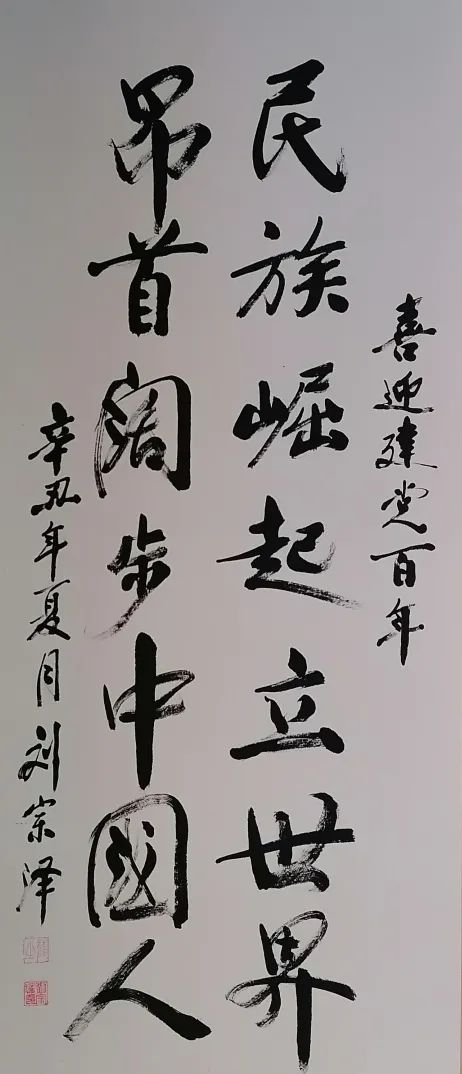 喜迎建党百年
民族崛起立世界
昂首阔步中國人
辛丑年夏月刘宗泽